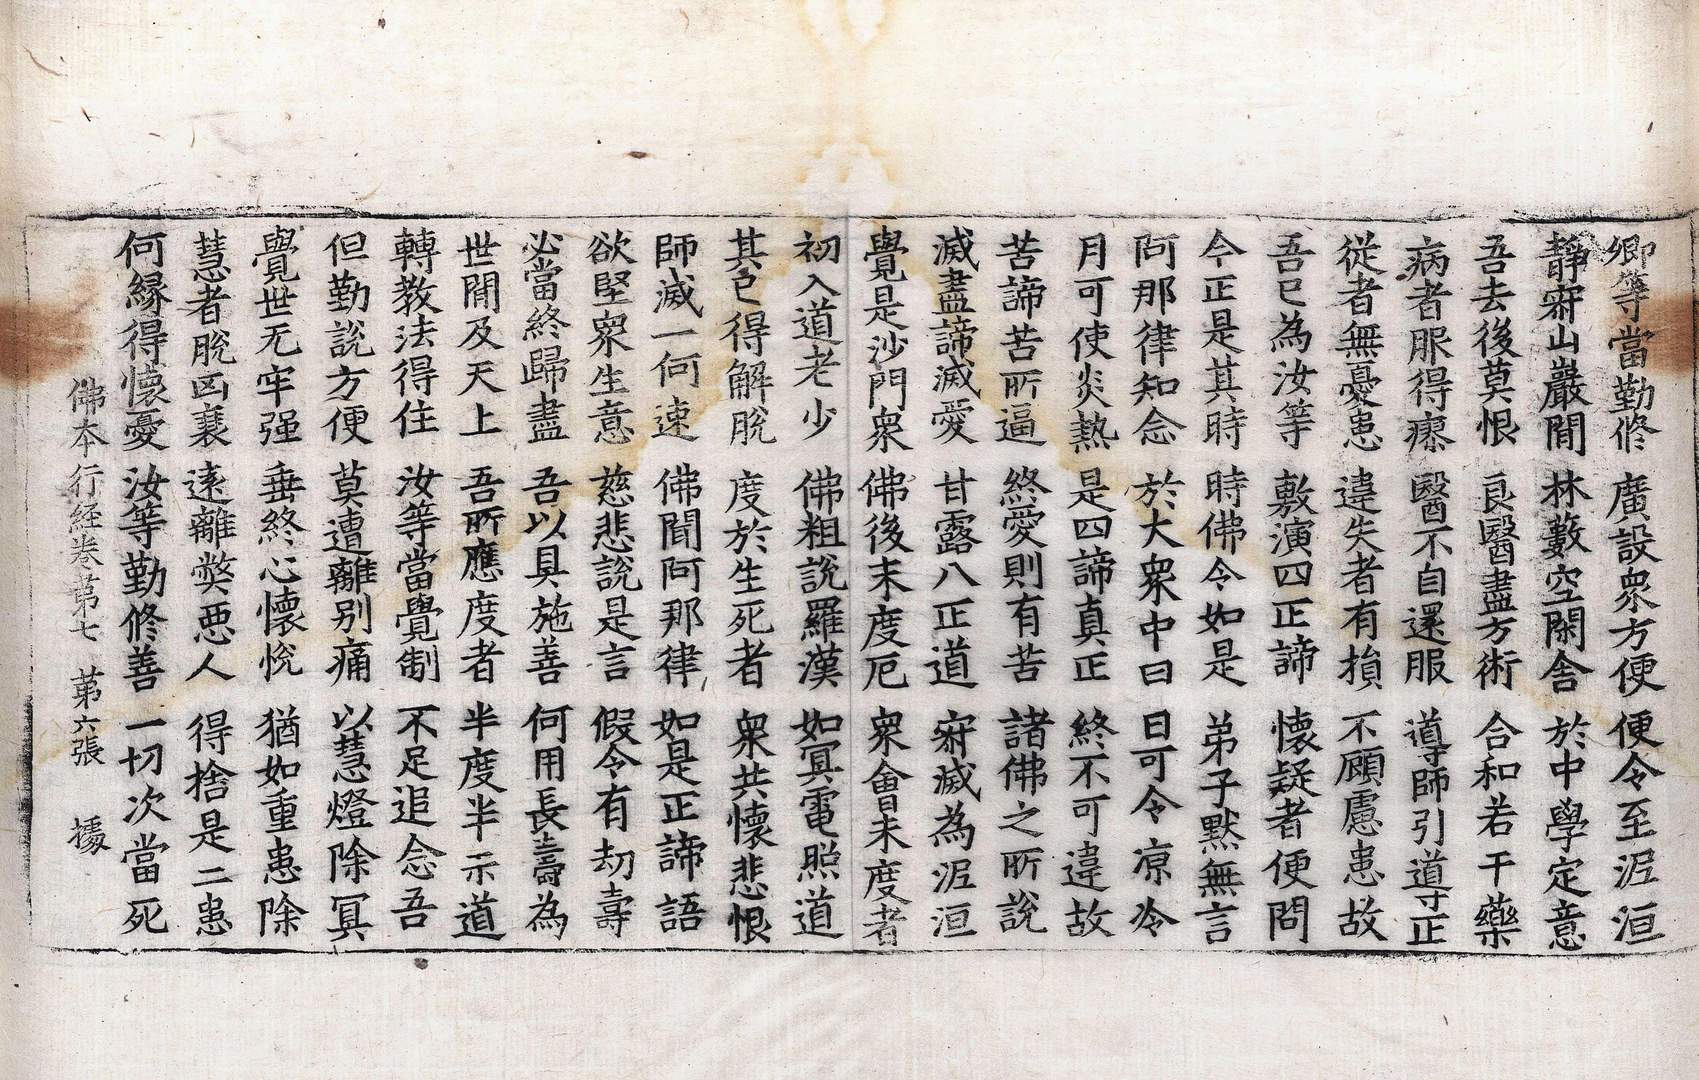 卿等當勤修 廣設衆方便 便令至泥洹
靜寂山巖間 林藪空閑舍 於中學定意
吾去後莫恨 良醫盡方術 合和若干藥
病者服得瘳 醫不自還服 導師引導正
從者無憂患 違失者有損 不顧慮患故
吾已為汝等 敷演四正諦 懷疑者便問
今正是其時 時佛令如是 弟子默無言
阿那律知念 於大衆中曰 日可令凉冷
月可使炎熱 是四諦真正 終不可違故
苦諦苦所逼 終愛則有苦 諸佛之所說
滅盡諦滅愛 甘露八正道 寂滅為泥洹
覺是沙門衆 佛後未度厄 衆會未度者
初入道老少 佛粗說羅漢 如冥電照道
其已得解脫 度於生死者 衆共懷悲恨
師滅一何速 佛聞阿那律 如是正諦語
欲堅衆生意 慈悲說是言 假令有劫壽
必當終歸盡 吾以具施善 何用長壽為
世間及天上 吾所應度者 半度半示道
轉教法得住 汝等當覺制 不足追念吾
但勤說方便 莫遭離別痛 以慧燈除冥
覺世无牢强 垂終心懷悅 猶如重患除
慧者脫凶衰 遠離弊惡人 得捨是二患
何緣得懷憂 汝等勤修善 一切次當死
佛本行経卷第七 第六張 㯫